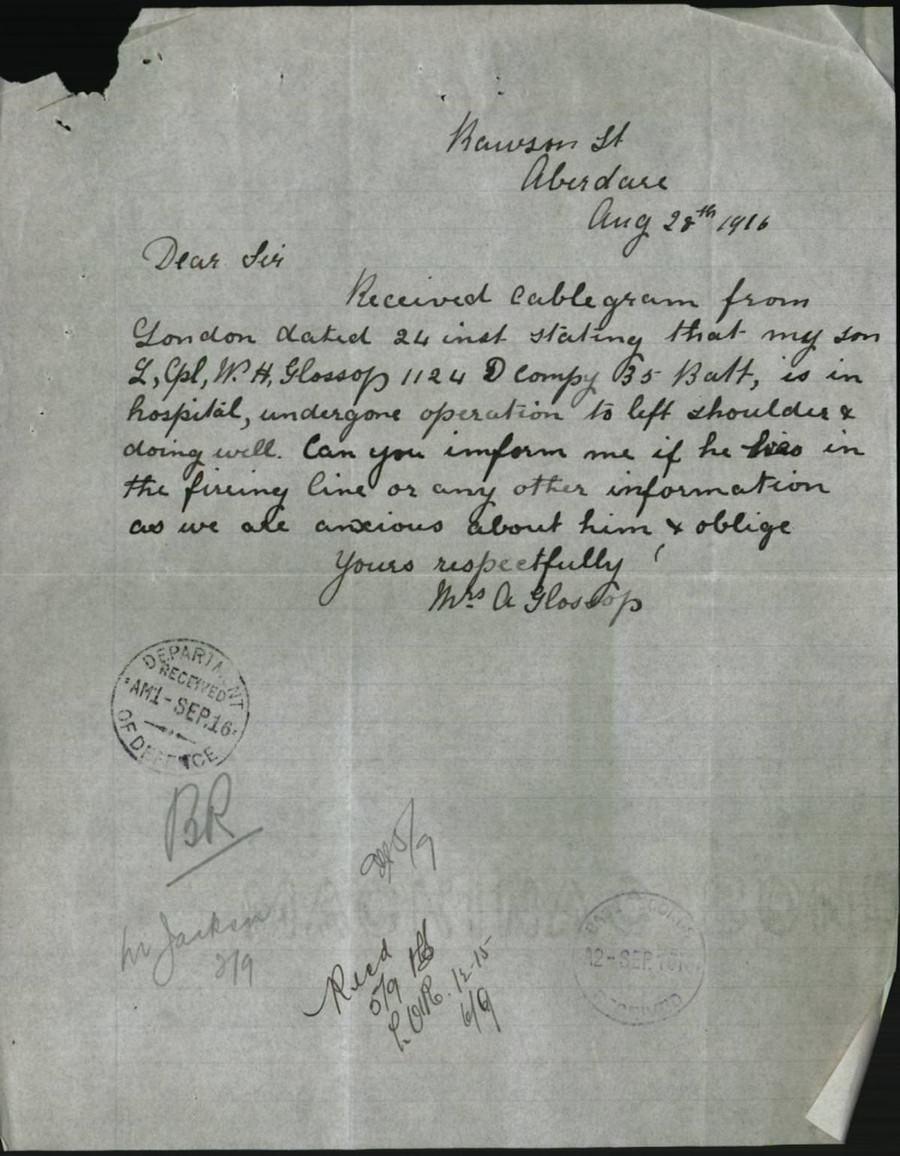 Rawson St
Aberdare
Aug 28th 1916
Dear Sir
Received Cablegram from
London dated 24 inst stating that my son
L, Cpl, W. H, Glossop 1124 D Compy 35 Batt, is in
hospital, undergone operation to left shoulder &
doing well. Can you imform me if he in
the fireing line or any other information
as we are anxious about him & oblige
Yours respectfully
Mrs A Glossop
DEPARTMENT
RECEIVED
AM 1 - SEP. 16
OF DEFENCE
BR
5/9
Mr Jackson
2/9
Recd
5/9
12-15
6/9
BASE RECORDS
2 - SEP. 1916
RECEIVED